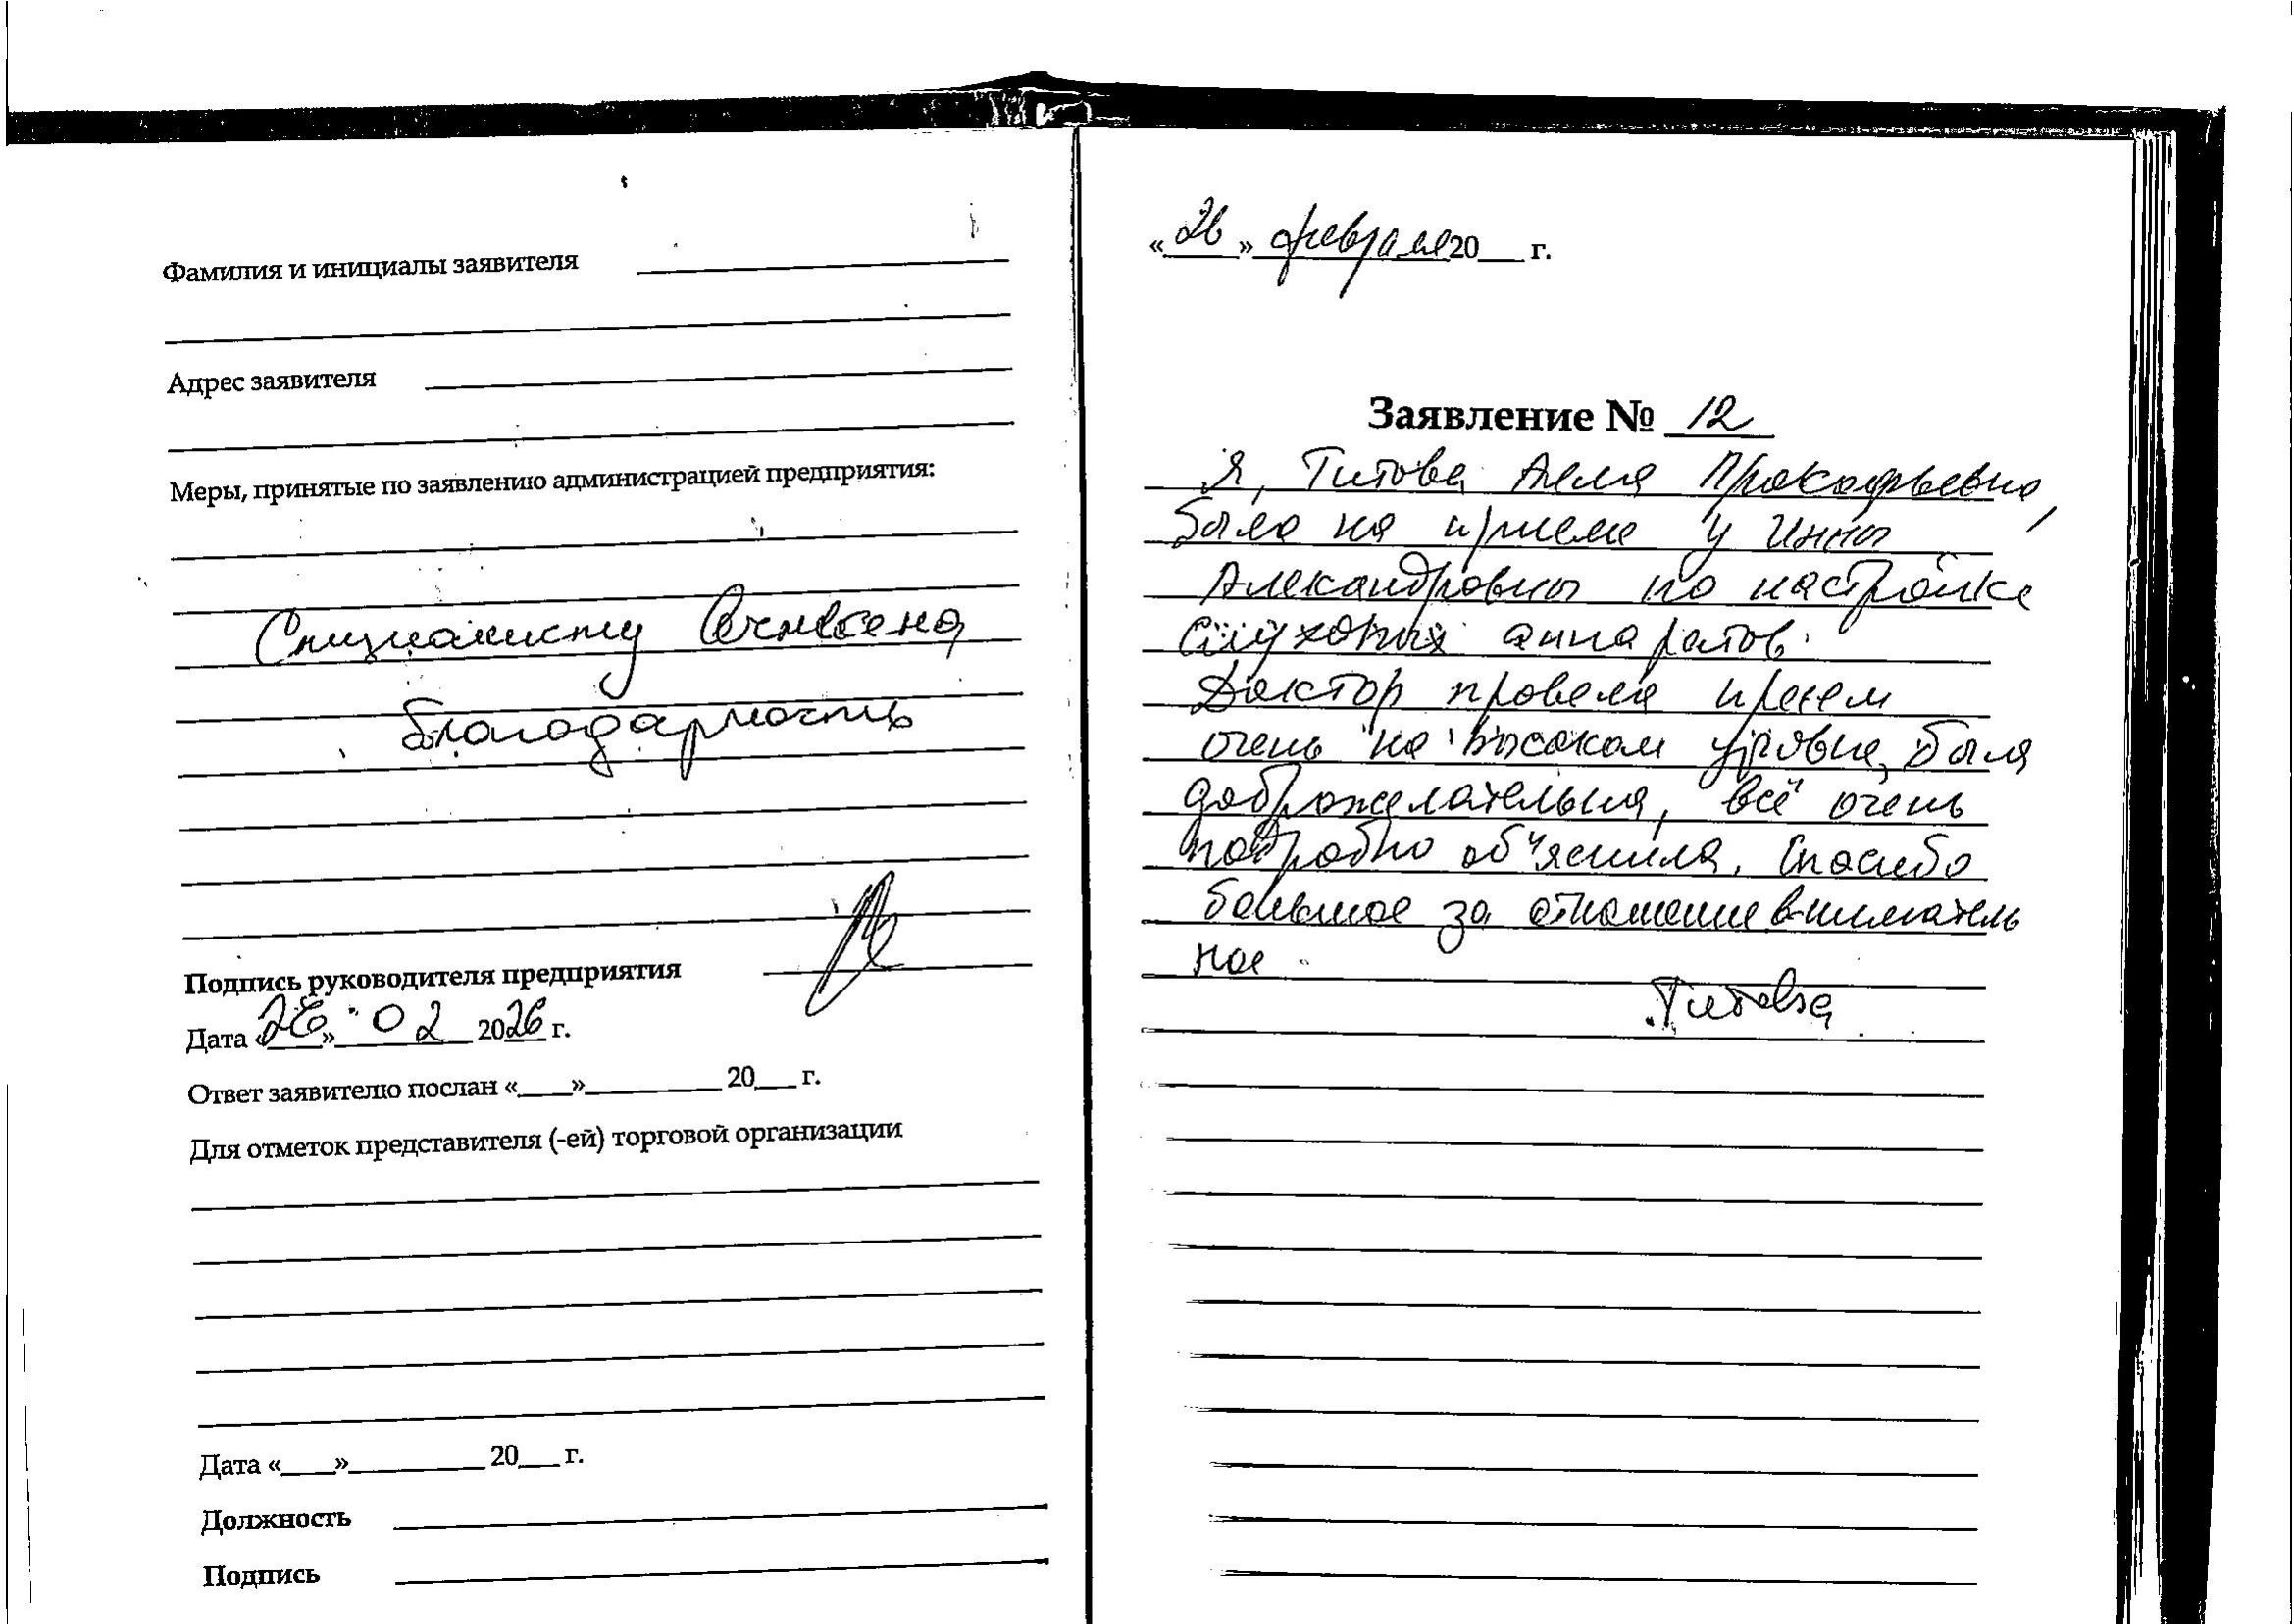 Фамилия и инициалы заявителя
Адрес заявителя
Меры, принятые по заявлению администрацией предприятия:
Специалисту
благодарность
Подпись руководителя предприятия
Дата «26» 02 2026 г.
Ответ заявителю послан «___»_________ 20___ г.
Для отметок представителя (-ей) торговой организации
Дата «___»_________ 20___ г.
Должность
Подпись
«26» февраля 20___ г.
Заявление № 12
Я, Титова Прокофьевна,
была на приеме у Инны
Александровны по настройке
слуховых аппаратов.
Доктор провела прием
очень на высоком уровне, была
доброжелательна, всё очень
подробно об"яснила. Спасибо
большое за отношение вниматель
ное.
Титова